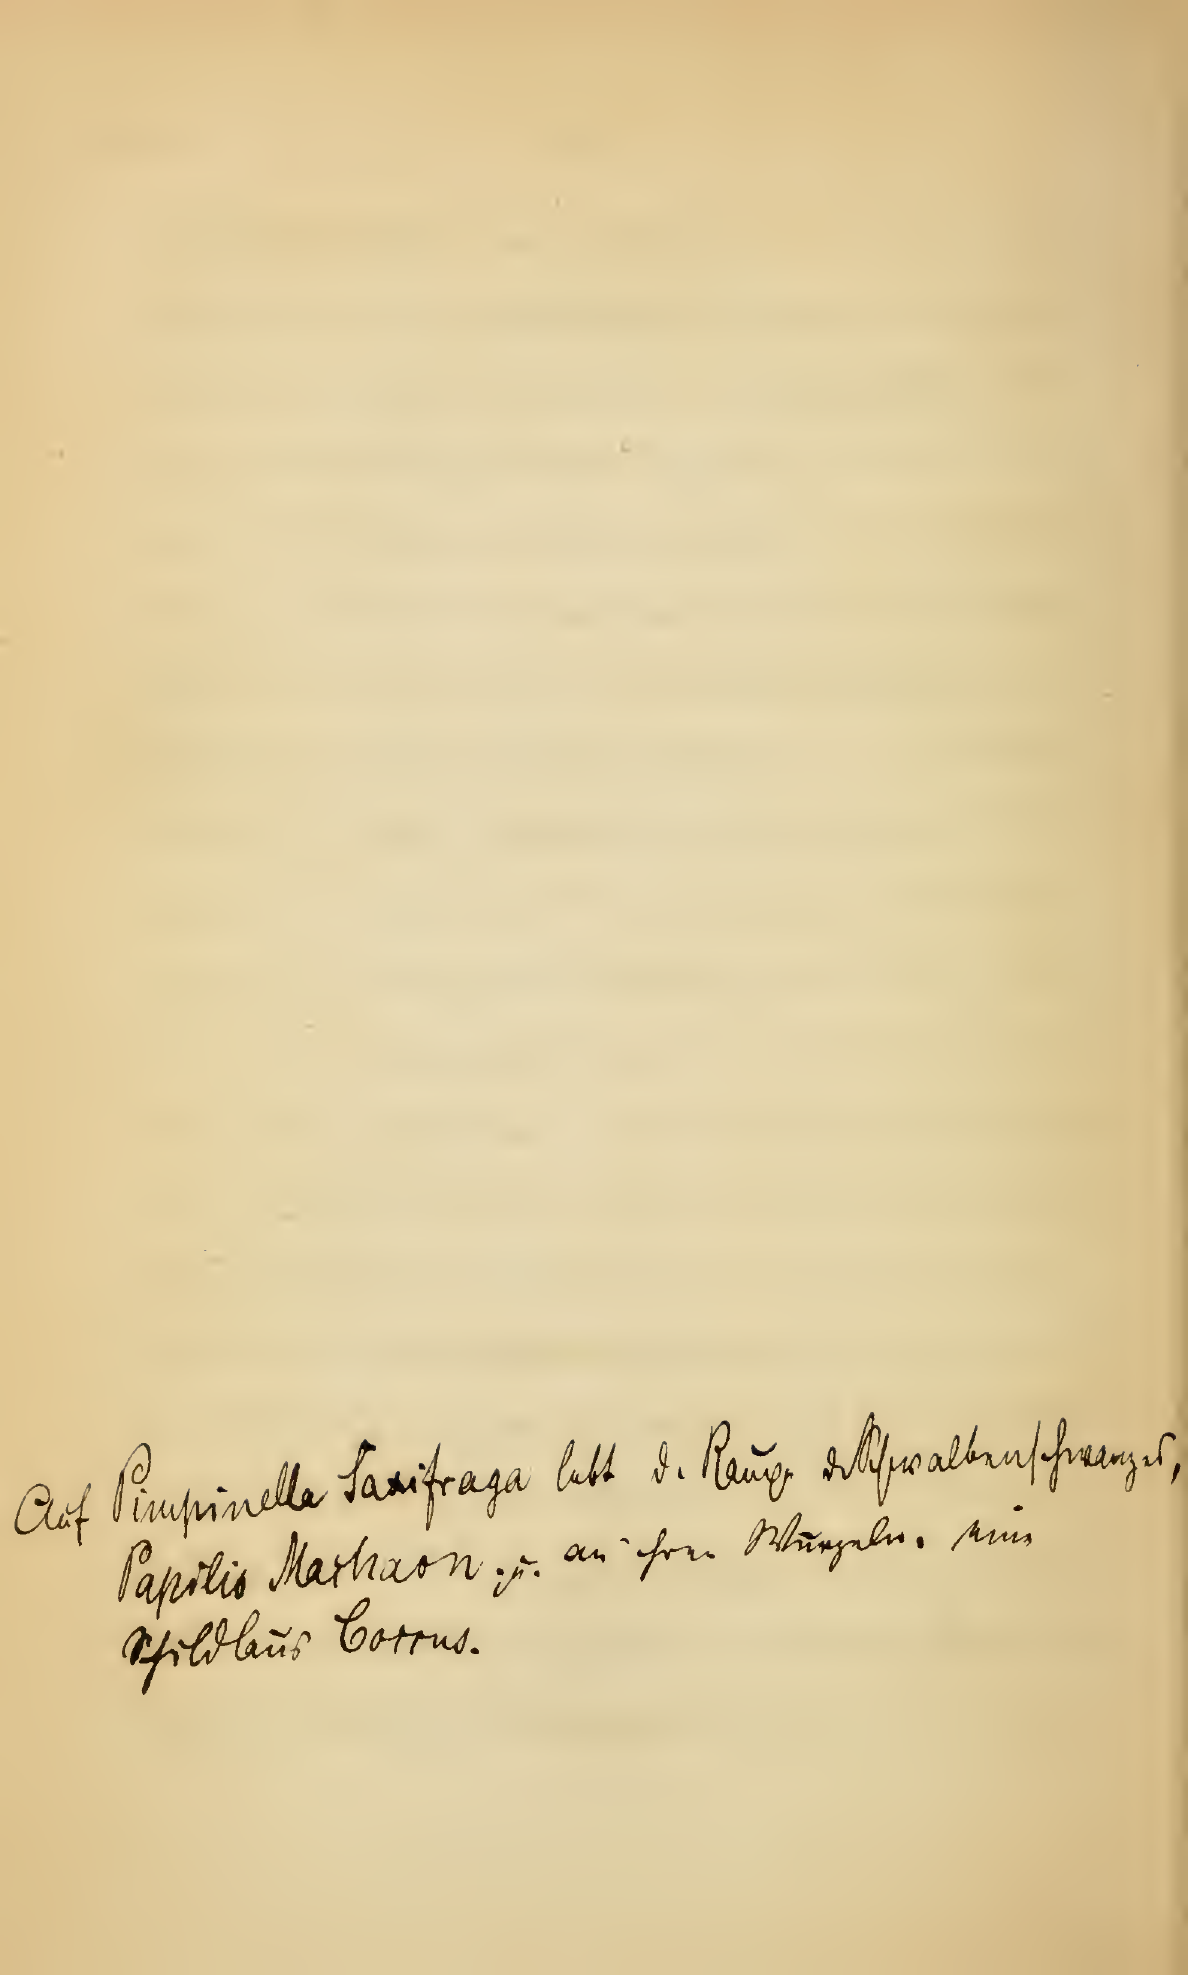 Auf Pimpinella Saxifraga lebt d. Raupe d. Schwalbenschwanzes,
Papilio Machaon u. an ihren Wurzeln. eine
Schildlaus Coccus.